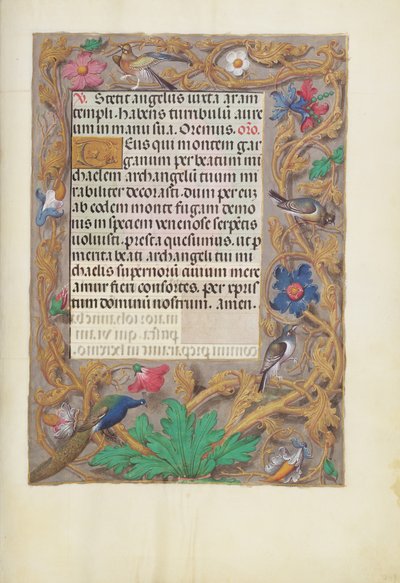 V. Stetit angelus iuxta aram
templi. habens turribulū aure
um in manu sua. Oremus. oro.
Deus qui montem gar
ganum per beatum mi
chaelem archangelū tuum mi
rabiliter decorasti. dum per eū
ab eodem monte fugam demo
nis in speciem venenose serpētis
voluisti. presta quesumus. ut p
menta beati archangeli tui mi
chaelis supernorū civium mere
amur fieri consortes. per xpris
tum dominū nostrum. amen.